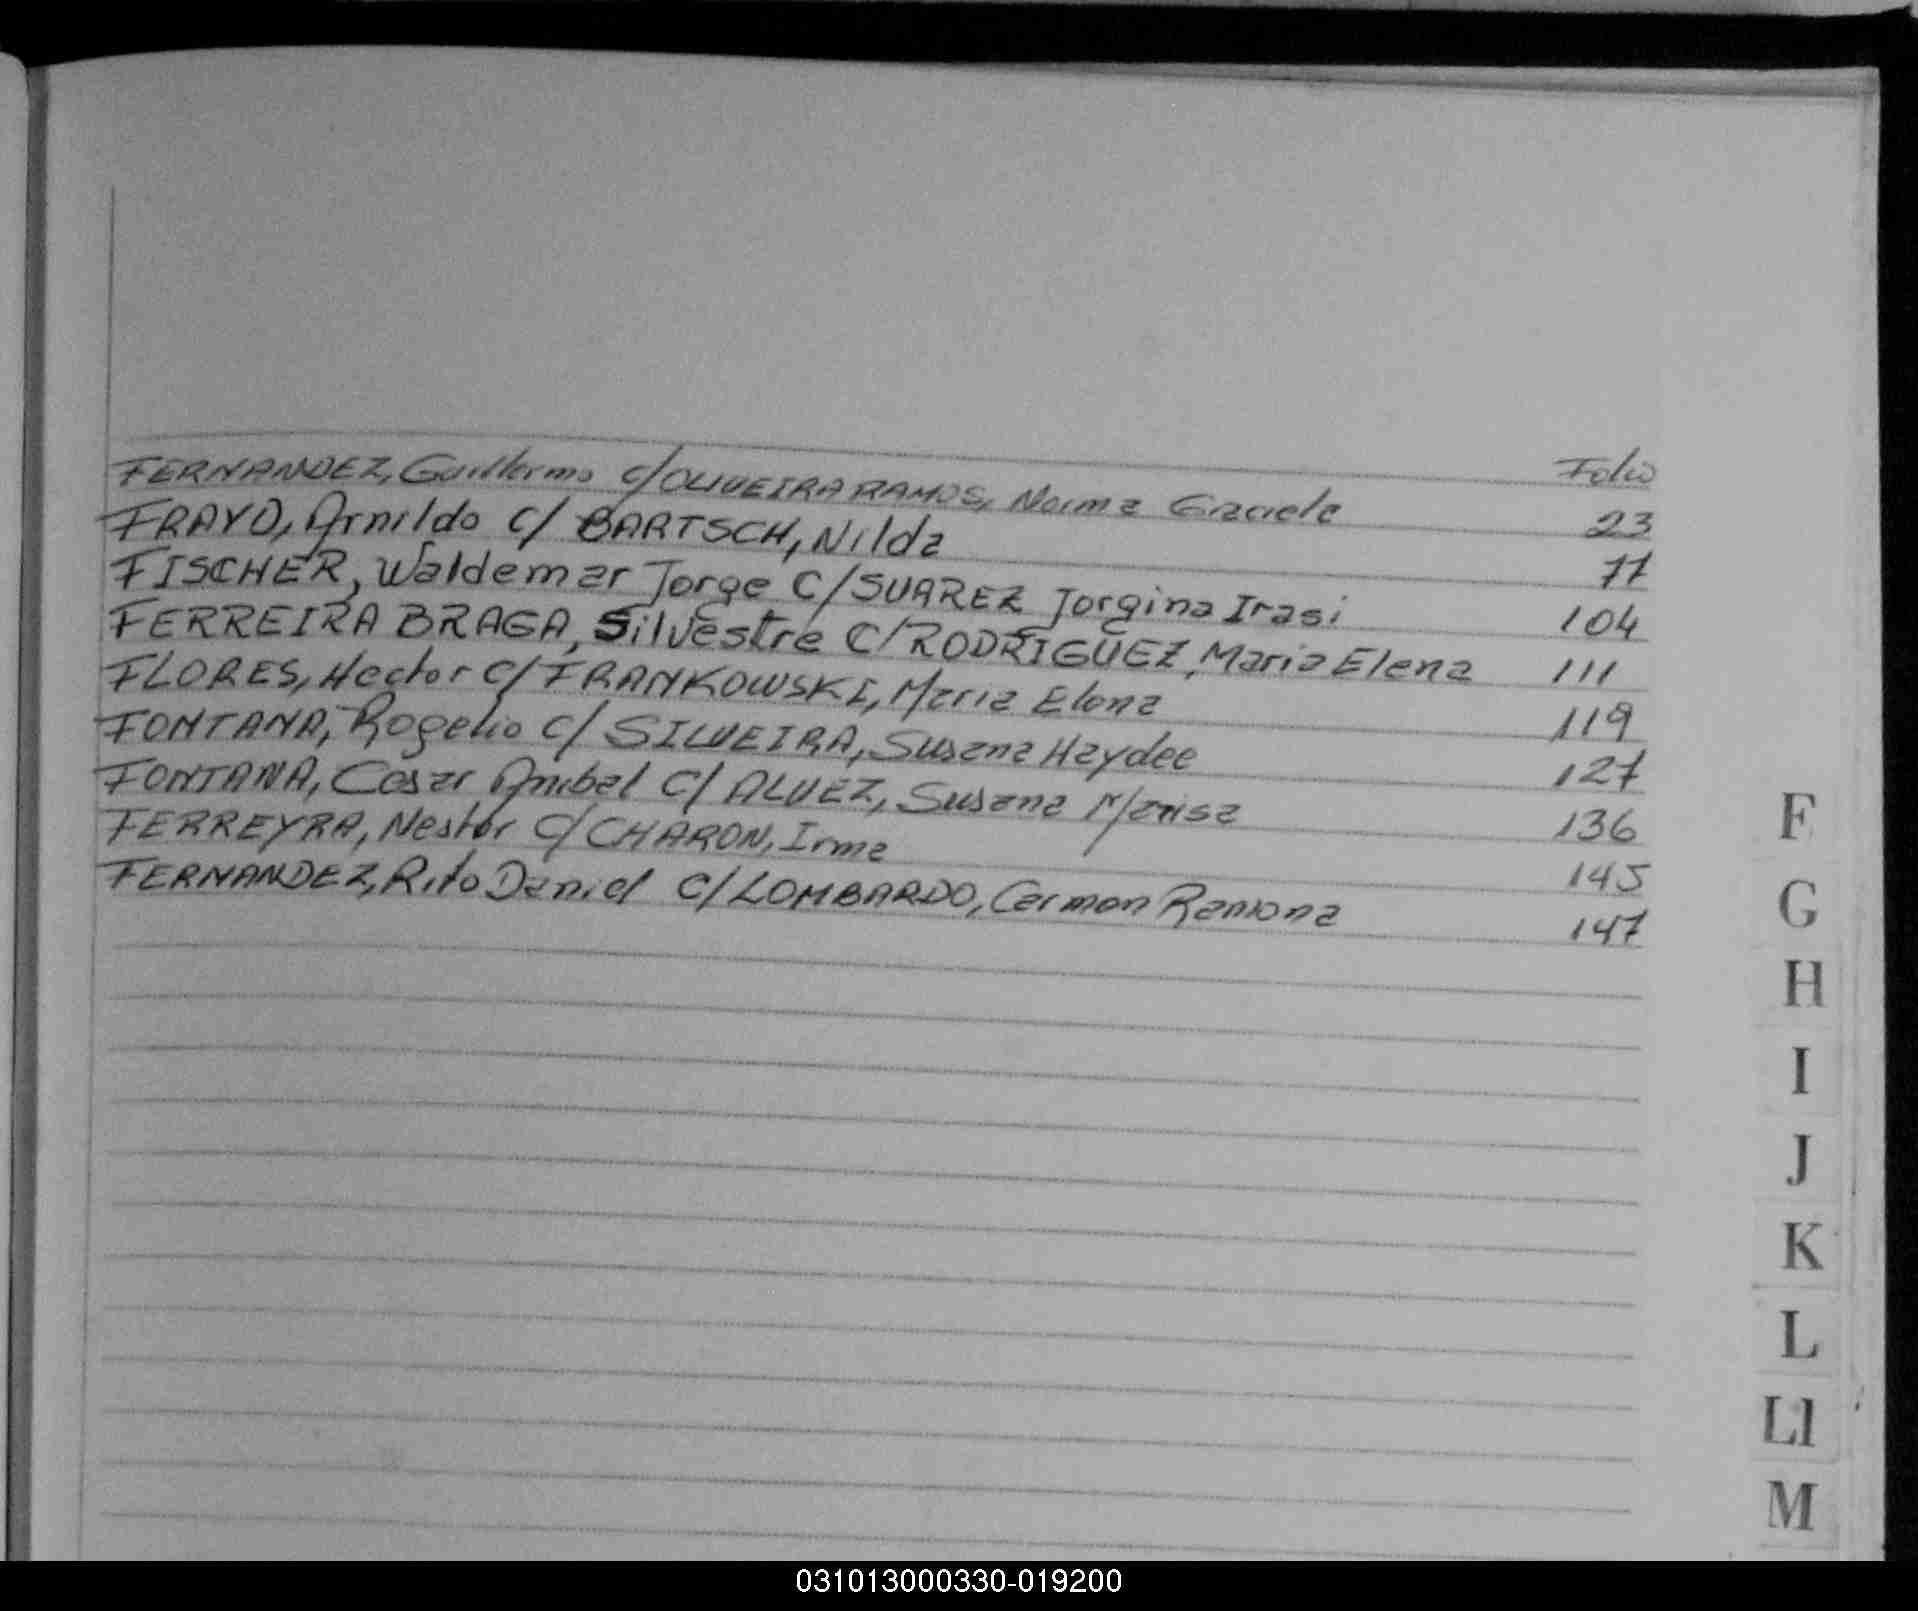 Folio
FERNANDEZ, Guillermo c/OLIVEIRA RAMOS, Norma Graciela 23
FRAYD, Arnildo c/ BARTSCH, Nilda 77
FISCHER, Waldemar Jorge C/SUAREZ Jorgina Irasi 104
FERREIRA BRAGA, Silvestre C/RODRIGUEZ, Maria Elena 111
FLORES, Hector C/FRANKOWSKI, Maria Elena 119
FONTANA, Rogelio C/ SILVEIRA, Susana Haydee 127
FONTANA, Cesar Anibal C/ ALVEZ, Susana Marisa 136
FERREYRA, Nestor C/CHARON, Irma 145
FERNANDEZ, Rito Daniel C/LOMBARDO, Carmen Ramona 147
F
G
H
I
J
K
L
Ll
M
031013000330-019200